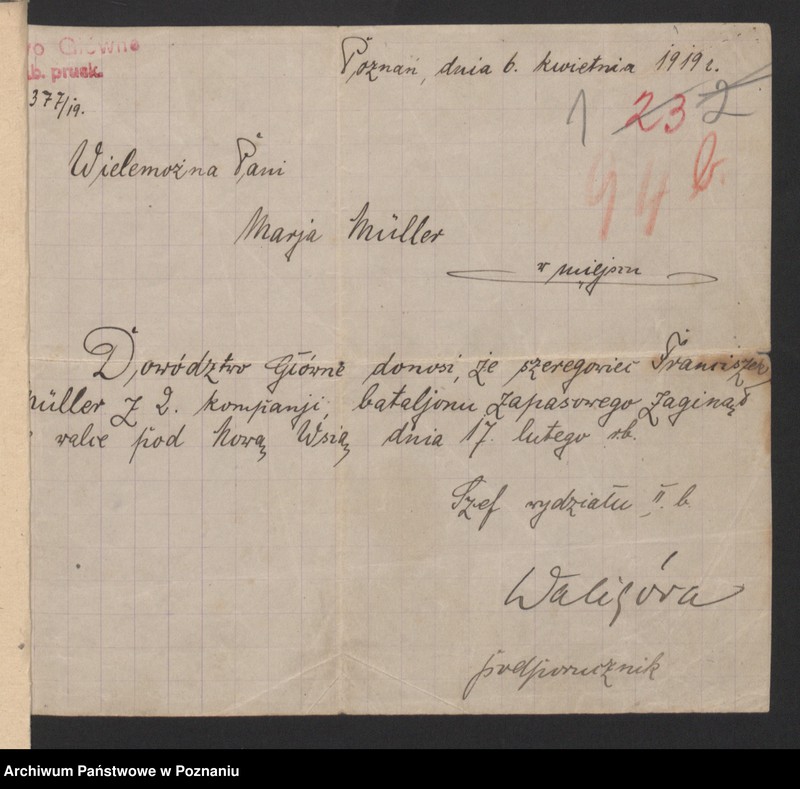 wo Główne
b. prusk.
377/19.
Poznań, dnia 6. kwietnia 1919 r.
1 23 2
94 b.
Wielemożna Pani
Marja Müller
w miejscu
Dowództwo Główne donosi, że szeregowiec Franciszek
Müller z 2. kompanji, bataljonu zapasowego zaginął
walce pod Nową Wsią dnia 17. lutego r.b.
Szef wydziału II. b.
Waligóra
podporucznik
Archiwum Państwowe w Poznaniu